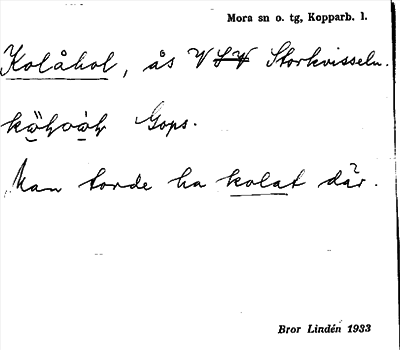 Mora sn o. tg, Kopparb. l.
Kolåhol, ås V S V Storkvisseln.
Gops.
Man torde ha kolat där.
Bror Lindén 1933